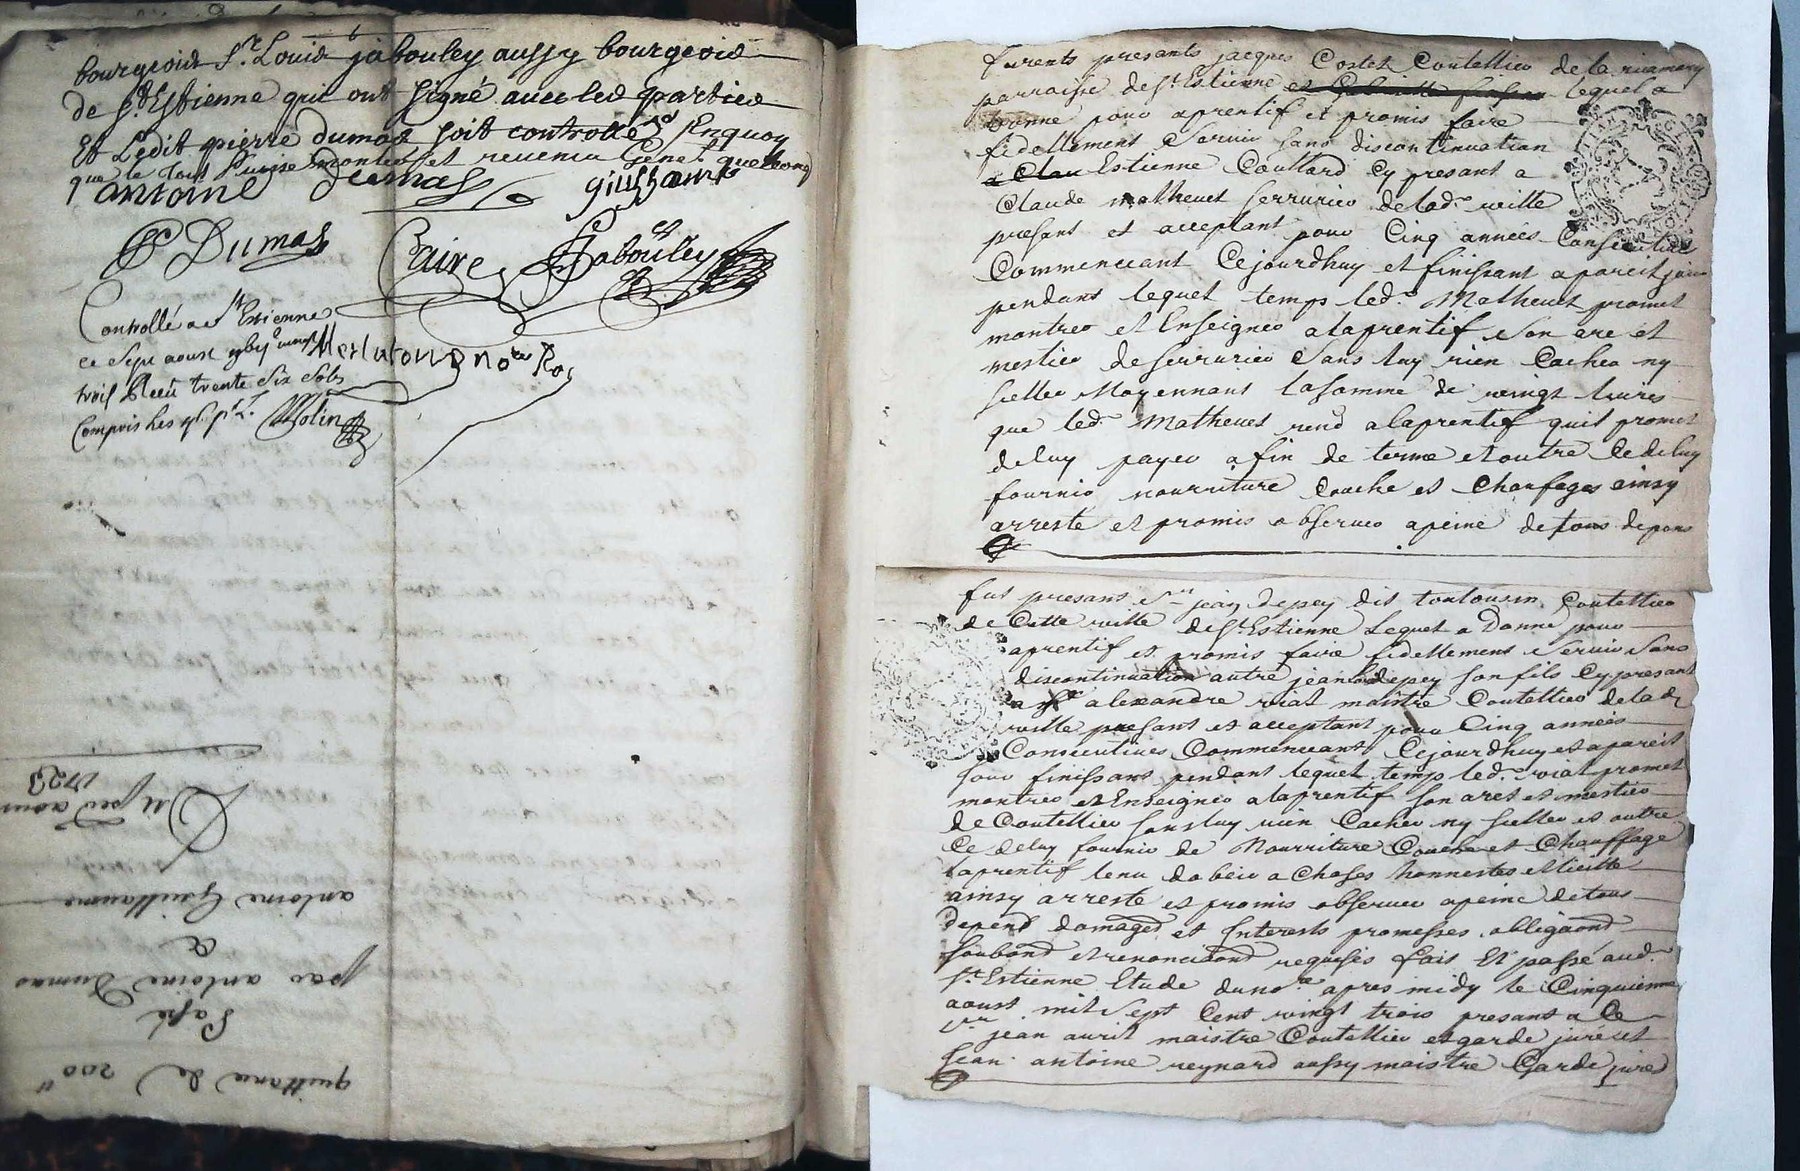 bourgeois Sr Louis jabouley aussy bourgeois
de St Estienne qui ont signé avec les parties
Et Ledit pierre dumas soit controllé
que le tout puisse monter et revenir
antoine dumas
P Dumas
Jabouley
Controllé a St Estienne
ce sept aoust
trois Receu trente six sols
Compris les
Molin
Du 5e aoust
1723
quittance de 200ll
Passé
par antoine Dumas
a
antoine Guillaume
furent presants jacques Costet Coutellier de la
parroisse de St Estienne lequel a
donne pour aprentif et promis faire
fidellement servir sans discontinuation
Estienne Coullard Cy presant a
Claude mathevet serrurier de lad. ville
presant et acceptant pour Cinq années Consecutives
Commenceant Cejourdhuy et finissant a pareit jour
pendant lequel temps led. Mathevet promet
montrer et Enseigner a laprentif son are et
mestier de serrurier sans luy rien Cacher ny
seller Moyennant la somme de vingt livres
que led. Mathevet a laprentif quil promet
de luy payer a fin de terme et outre Ce de luy
fournir nourriture Couche et Chaufages ainsy
arresté et promis observer a peine de tous depans
fut presant Sr jean depey dit toulousin Coutellier
de Cette ville de St Estienne Lequel a Donné pour
aprentif et promis faire fidellement servir sans
discontinuation autre jean depey son fils Cy presant
a alexandre viat maistre Coutellier de lad
ville presant et acceptant pour Cinq années
Consecutives Commenceant Cejourdhuy et a pareit
jour finissant pendant lequel temps led. viat promet
montrer et Enseigner a laprentif son aret et mestier
de Coutellier sans luy rien Cacher ny seller et outre
Ce de luy fournir de Nourriture Couche et Chauffage
laprentif tenu dobeir a Choses honnestes et licitte
ainsy arresté et promis observer a peine de tous
depens damages et Interests promesses obligaond
soubond et renonciaond requises fait Et passé aud.
St Estienne Etude du nore apres midy le Cinquieme
aoust mil sept Cent vingt trois presant a Ce
Sr jean avril maistre Coutellier et garde juré et
jean antoine reynard aussy maistre Garde juré